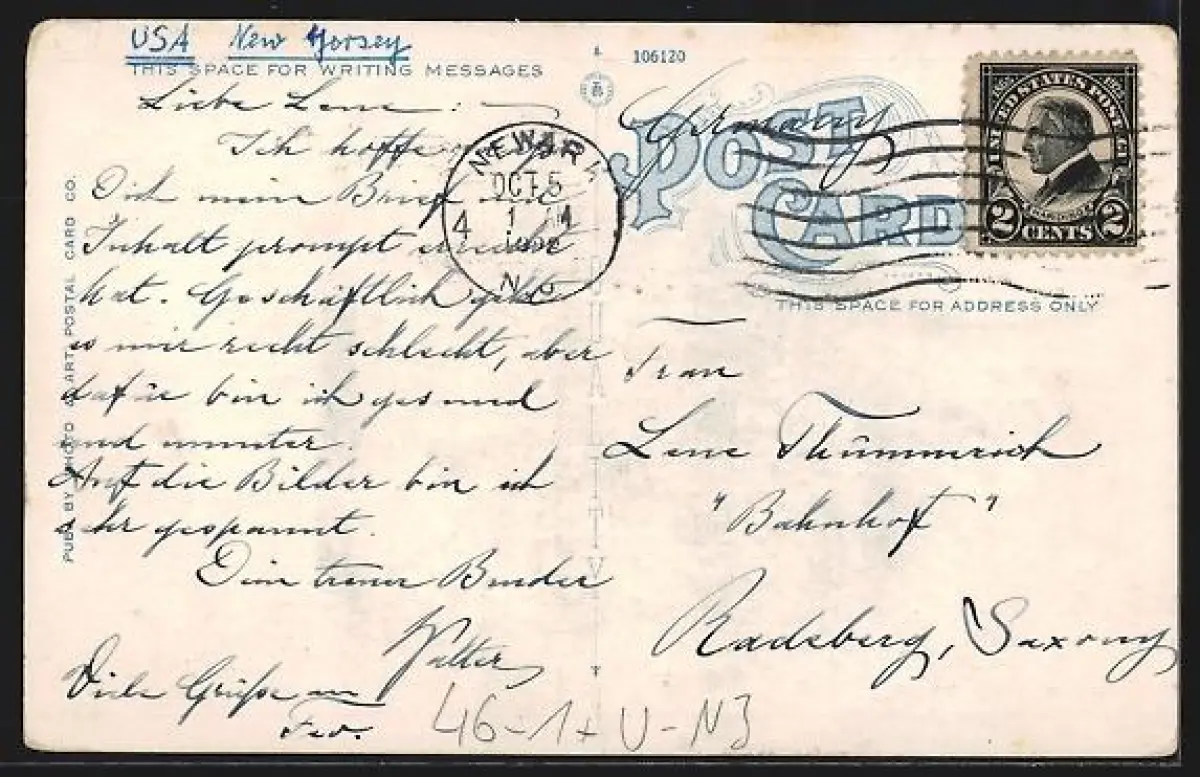 USA New Jorsey
THIS SPACE FOR WRITING MESSAGES
Liebe Lene:
Ich hoffe
Dich mein Brief mit
Inhalt prompt erreicht
hat. Geschäftlich geht
es mir recht schlecht, aber
dafür bin ich gesund
und munter.
Auf die Bilder bin ich
sehr gespannt.
Dein treuer Bruder
Walter
Viele Grüße an
PUBL BY PHOTO & ART POSTAL CARD CO.
46-1+ U-NJ
NEWARK
OCT 5
4
1
N.J.
106120
Germany
POST
CARD
UNITED STATES POSTAGE
2 CENTS 2
THIS SPACE FOR ADDRESS ONLY
Frau
Lene Thümmrich
"Bahnhof"
Radeberg, Saxony